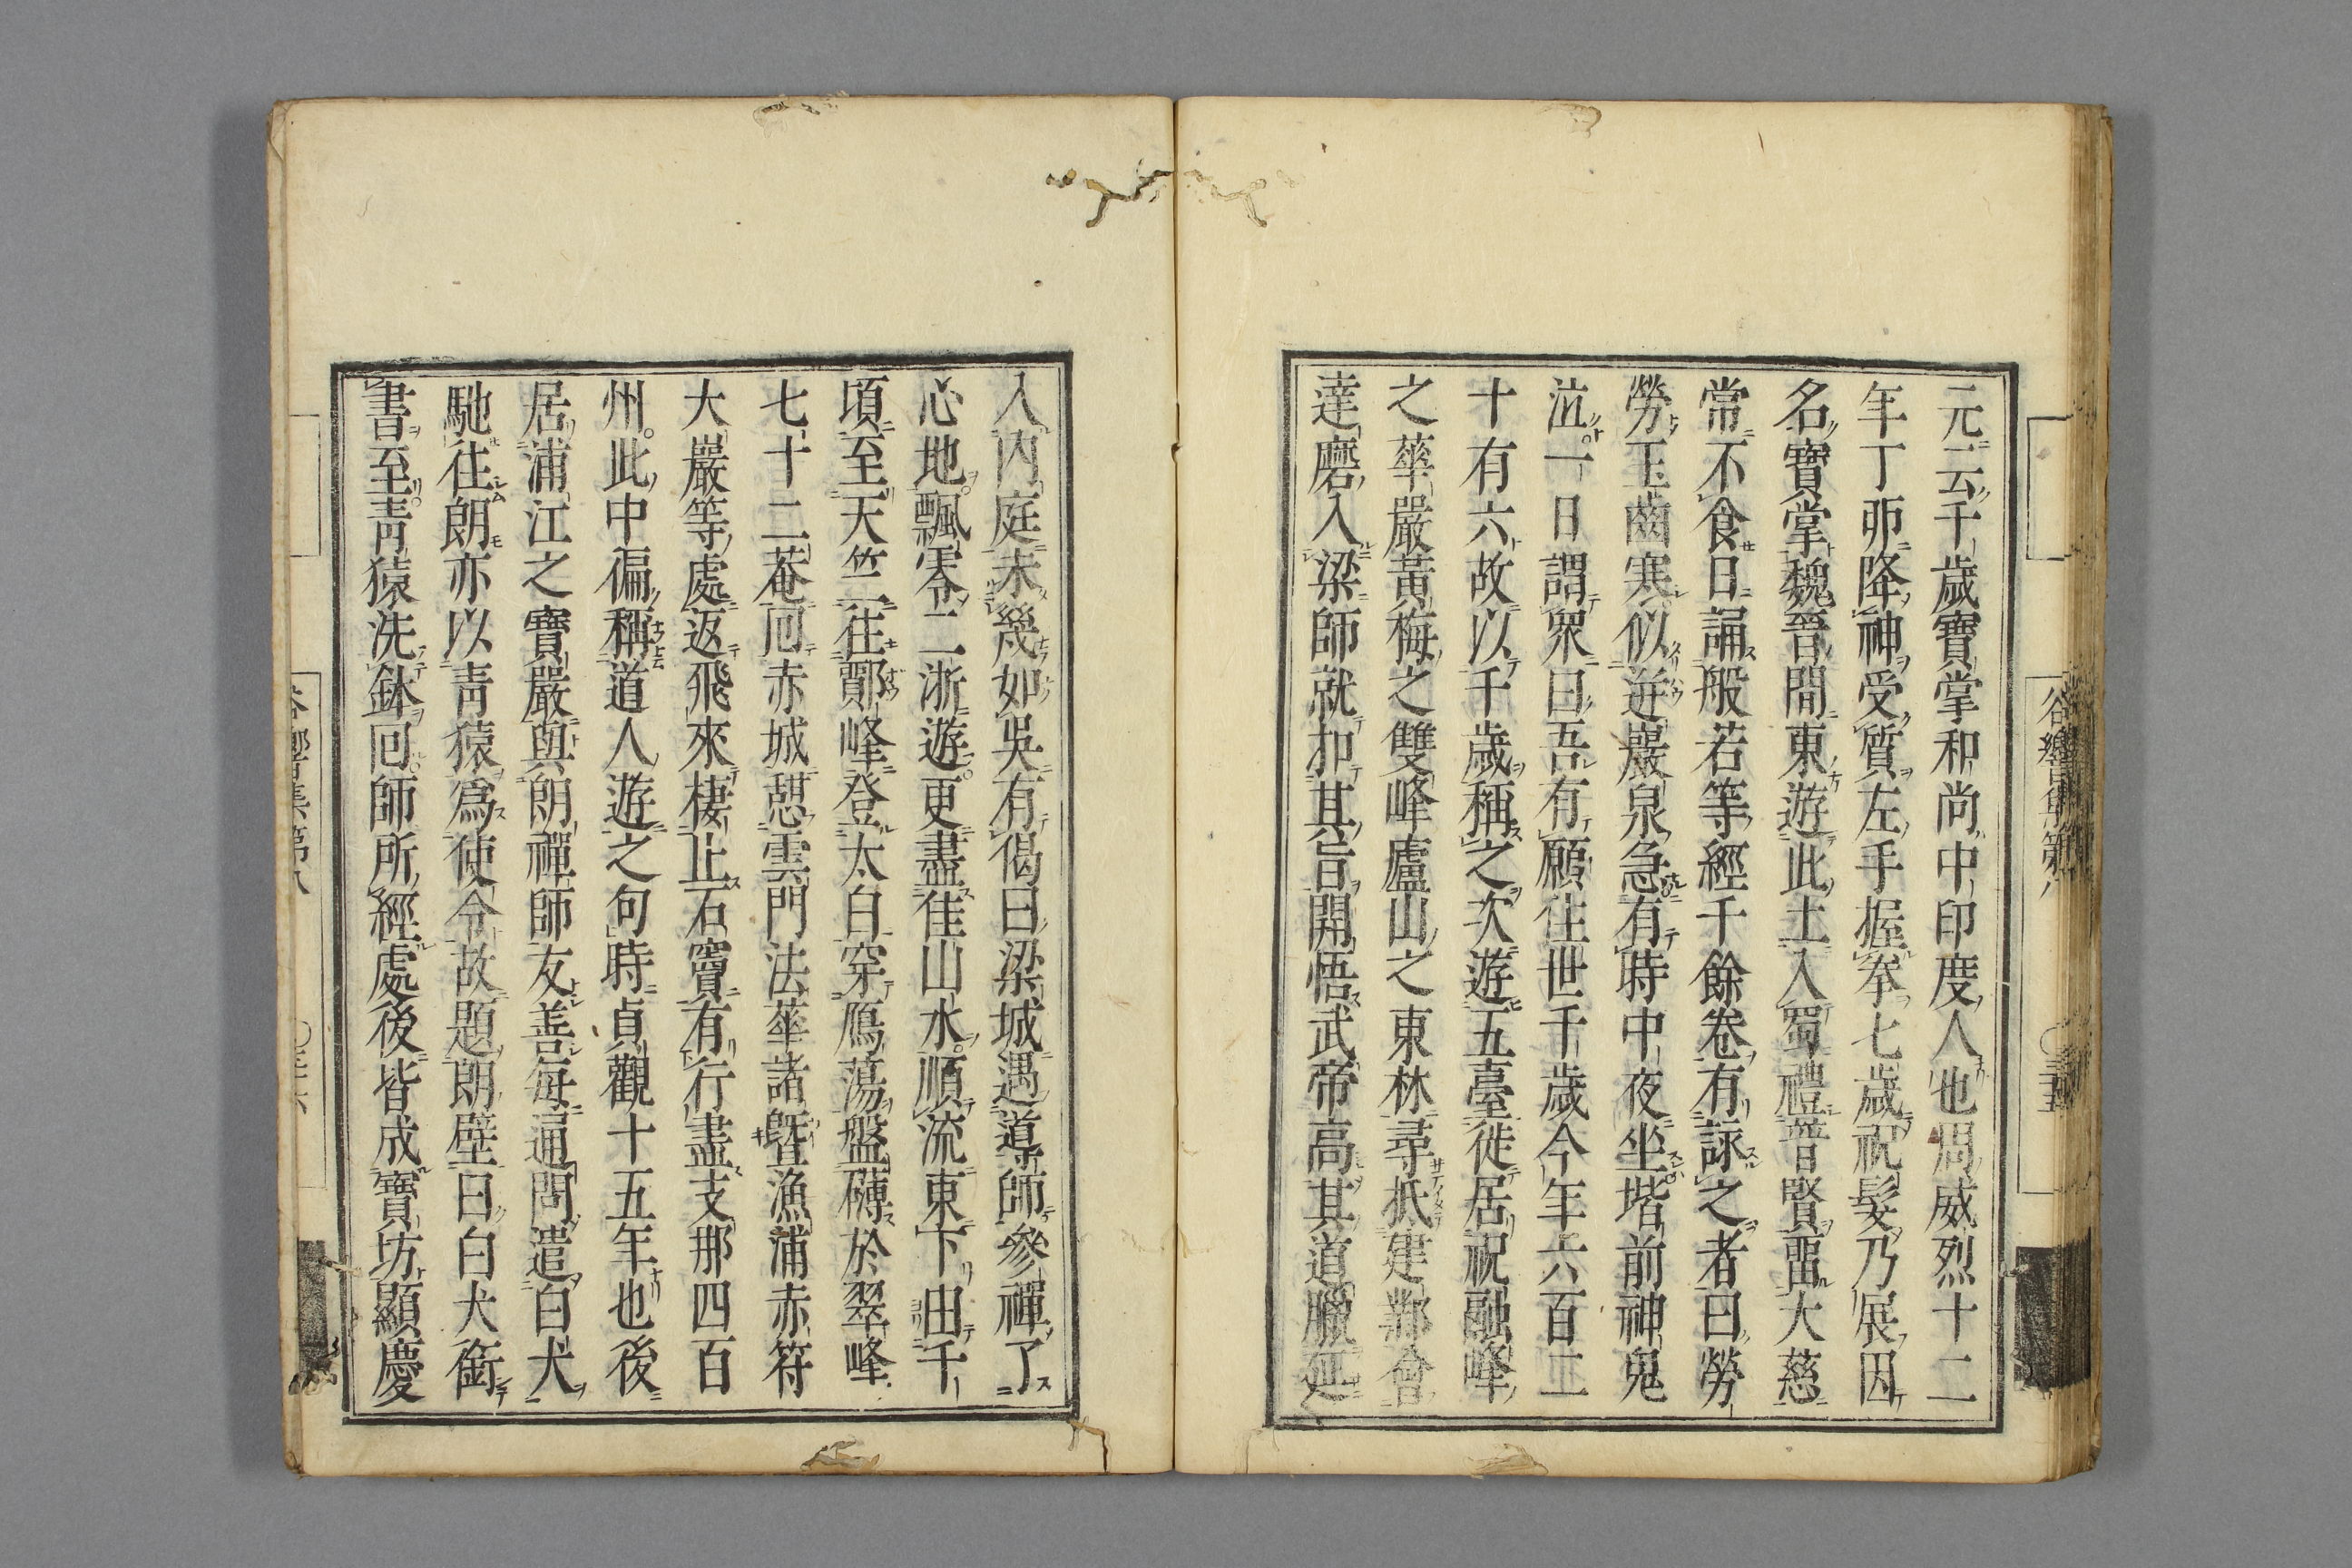 元云千歲寶掌和尚中印度人也周威烈十二
年丁卯降神受質左手握拳七歲祝髮乃展因
名寶掌魏晉間東遊此土入蜀禮普賢留大慈
常不食日誦般若等經千餘卷有詠之者曰勞
勞玉齒寒似迸巖泉急有時中夜坐堦前神鬼
泣一日謂眾曰吾有願住世千歲今年六百二
十有六故以千歲稱之次遊五臺徙居祝融峰
之華嚴黃梅之雙峰廬山之東林尋抵建鄴會
達磨入梁師就扣其旨開悟武帝高其道臘延
谷響集第八 〇三十五
入內庭未幾如吳有偈曰梁城遇導師參禪了
心地飄零二浙遊更盡佳山水順流東下由千
頃至天竺二往鄮峰登太白穿鴈蕩盤礴於翠峰
七十二菴囘赤城憩雲門法華諸暨漁浦赤符
大嚴等處返飛來棲止石竇有行盡支那四百
州此中徧稱道人遊之句時貞觀十五年也後
居浦江之寶嚴與朗禪師友善每通問遣白犬
馳往朗亦以靑猿爲使令故題朗壁曰白犬銜
書至靑猿洗鉢囘師所經處後皆成寶坊顯慶
谷響集第八 〇三十六